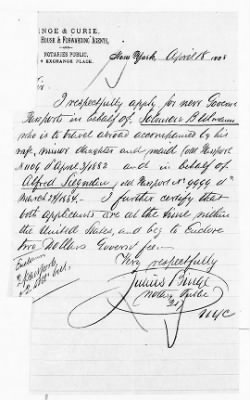 NGE & CURIE,
HOUSE & FORWARDING AGENTS,
NOTARIES PUBLIC,
EXCHANGE PLACE.
New York April 18
Sir
I respectfully apply for new Governm
Passports in behalf of Solomon
who is to travel abroad accompanied by his
wife, minor daughter and maid (old Passport
No 1106 d' April 3/1882 and in behalf of
Alfred old Passport No 9999 d'
March 29/1884. - I further certify that
both applicants are at this time within
the United States, and beg to Enclose
two Dollars Governm't fee
Very respectfully
Julius
Notary Public
NYC
Enclosures
2 Passports